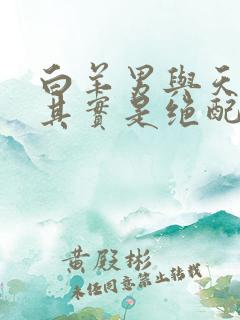 白羊男與天
其實是绝配
黄殿彬
未经同意禁止转载